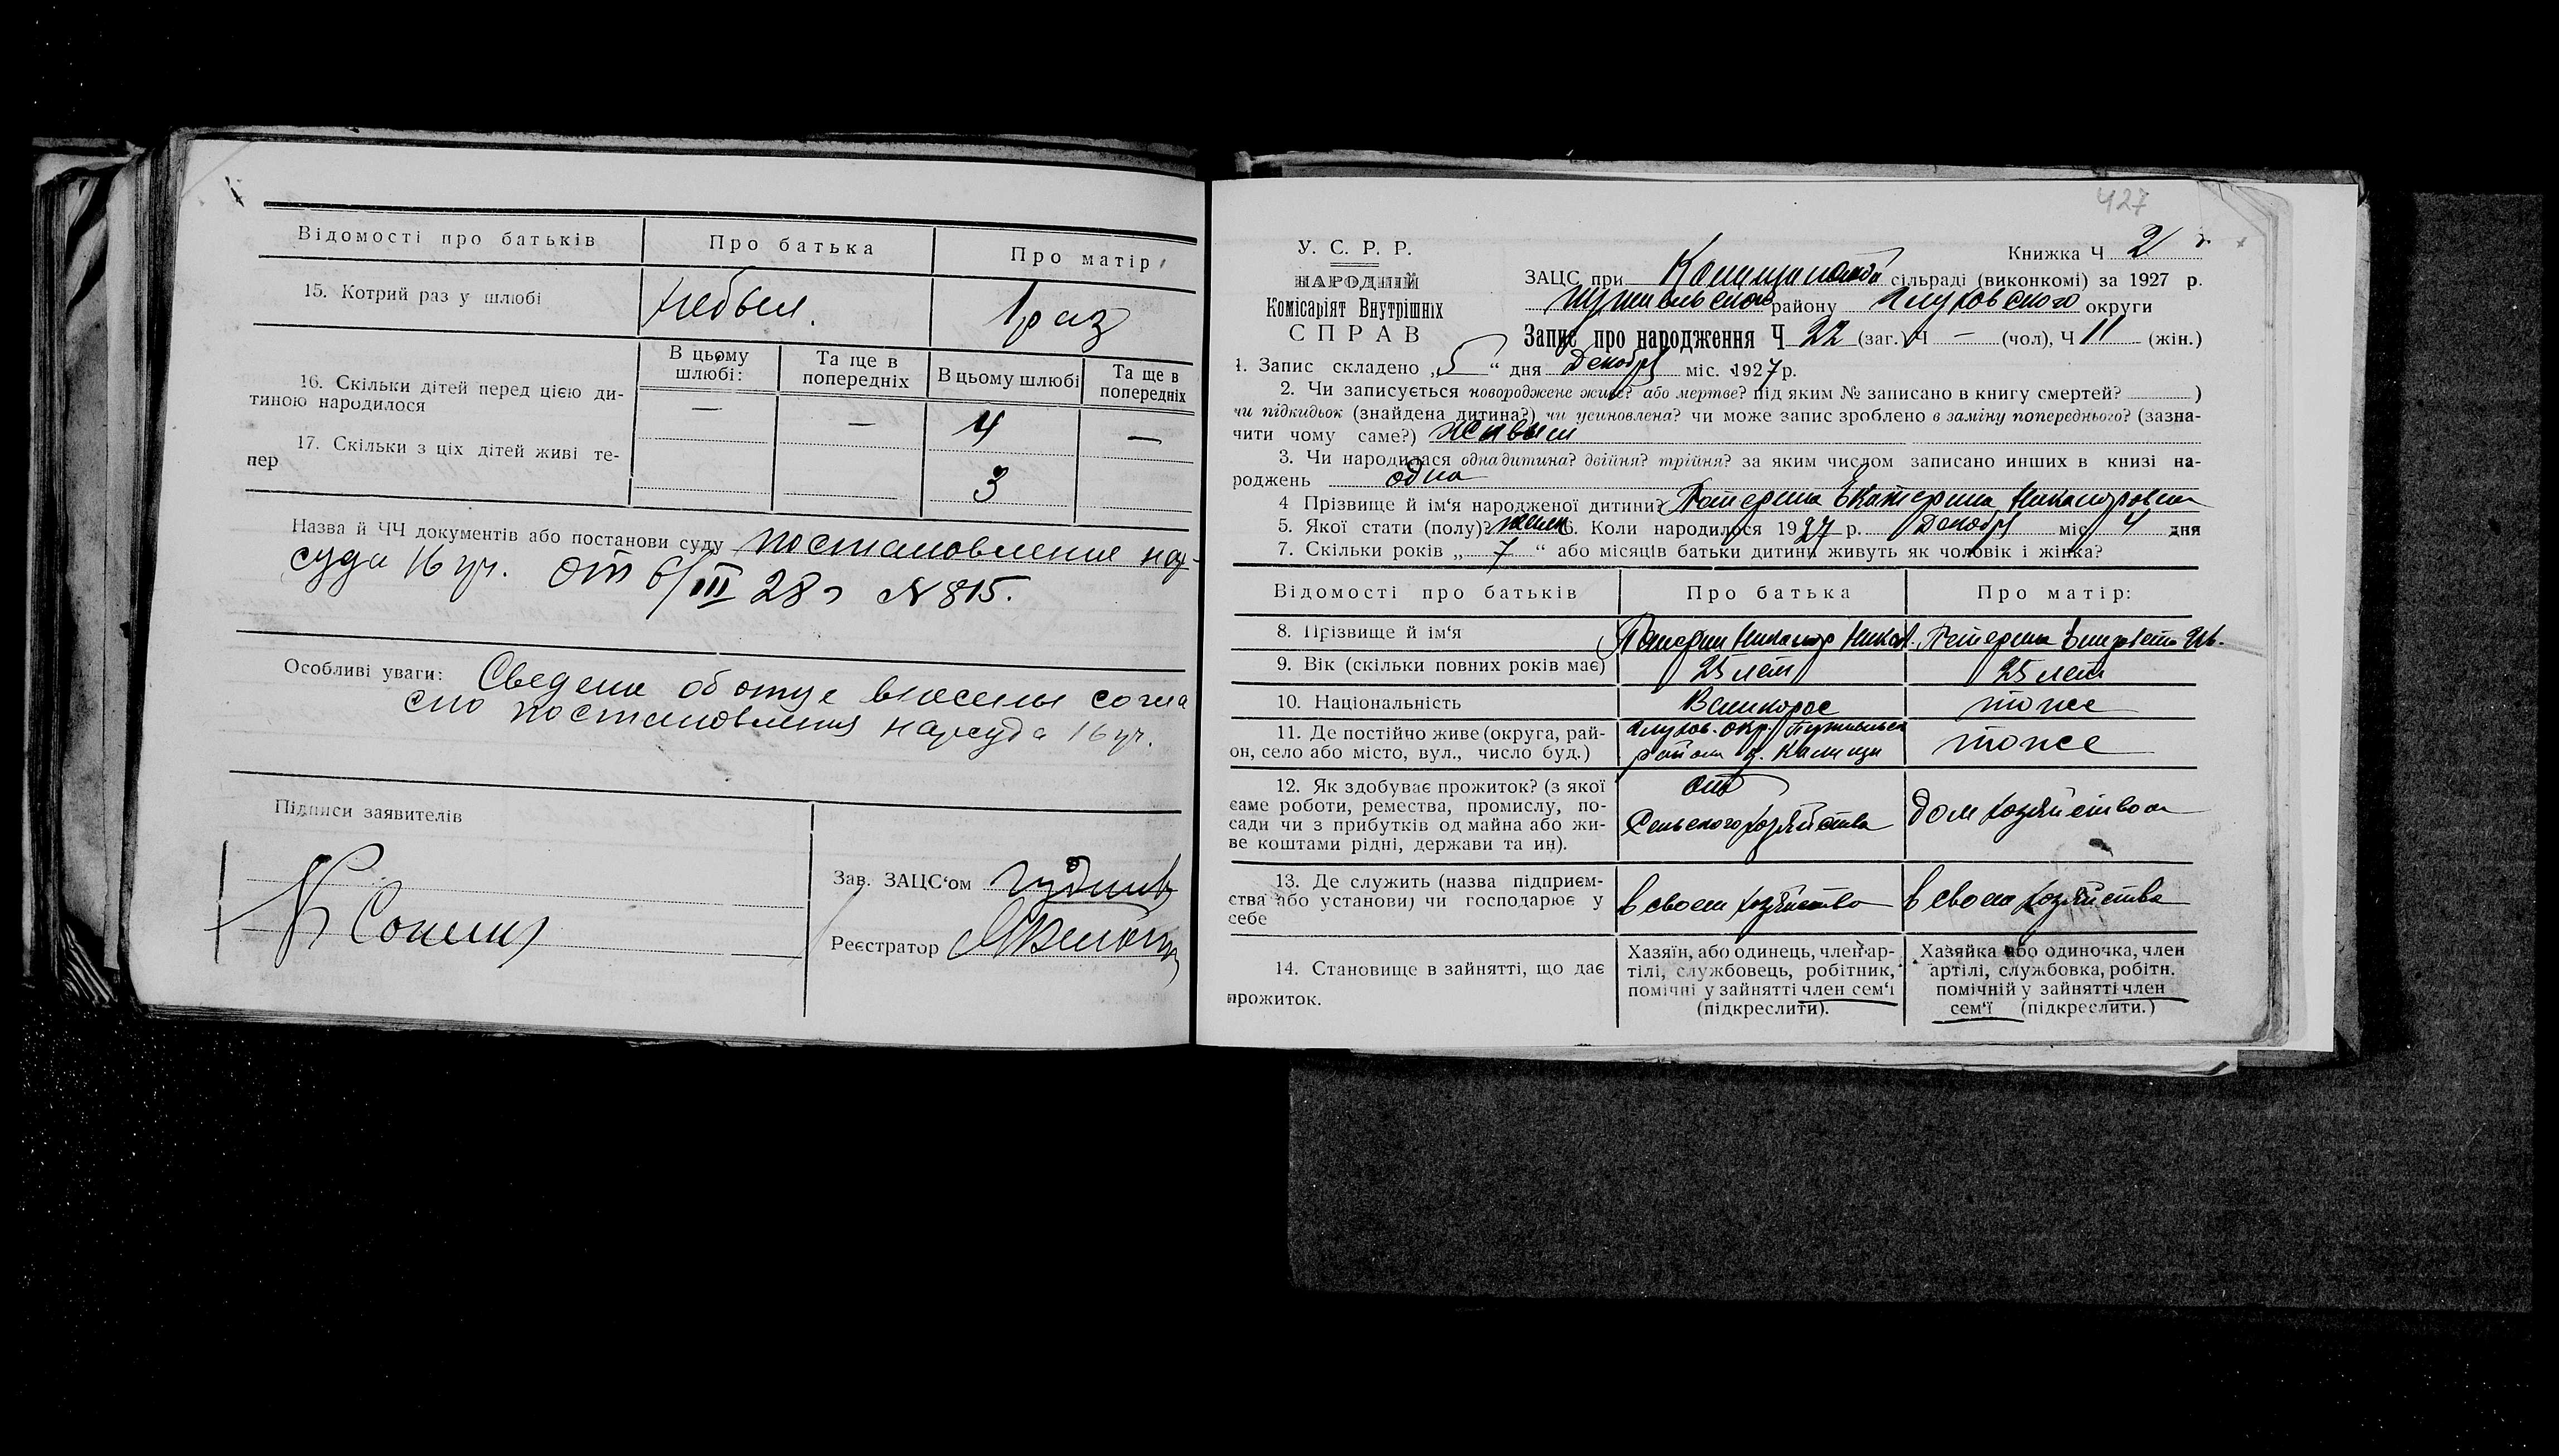 Відомості про батьків
Про батька
Про матір
15. Котрий раз у шлюбі
небыл.
1 раз
В цьому шлюбі:
Та ще в попередніх
В цьому шлюбі
Та ще в попередніх
16. Скільки дітей перед цією ди-
тиною народилося
—
—
4
—
17. Скільки з ціх дітей живі те-
пер
3
Назва й ЧЧ документів або постанови суду постановление нар-
суда 16 уч. от 6/III 28 г N 815.
Особливі уваги: Сведени об отце внесены согла
сно постановления нарсуда 16 уч.
Підписи заявителів
Зав. ЗАЦС‘ом
Реєстратор
427
У. С. Р. Р.
НАРОДНІЙ
Комісаріят Внутрішніх
СПРАВ
Книжка Ч 2
ЗАЦС при сільраді (виконкомі) за 1927 р.
району Глуховского округи
Запис про народження Ч 22 (заг.) Ч — (чол), Ч 11 (жін.)
1. Запис складено „5“ дня Декабр міс. 1927 р.
2. Чи записується новороджене живе? або мертве? під яким № записано в книгу смертей? )
чи підкидьок (знайдена дитина?) чи усиновлена? чи може запис зроблено в заміну попереднього? (зазна-
чити чому саме?) живым
3. Чи народилася одна дитина? двійня? трійня? за яким числом записано инших в книзі на-
роджень одна
4 Прізвище й ім‘я народженої дитини? Екатерина Никаноровна
5. Якої стати (полу)? женск 6. Коли народилося 1927 р. Декабр міс 4 дня
7. Скільки років „7“ або місяців батьки дитини живуть як чоловік і жінка?
Відомості про батьків
Про батька
Про матір:
8. Прізвище й ім‘я
Никанор
9. Вік (скільки повних років має)
25 лет
25 лет
10. Національність
Великорос
тоже
11. Де постійчо живе (округа, рай-
он, село або місто, вул., число буд.)
Глухов. окр. Путивльск
район
тоже
12. Як здобуває прожиток? (з якої
саме роботи, ремества, промислу, по-
сади чи з прибутків од майна або жи-
ве коштами рідні, держави та ин).
от
Сельского хозяйства
дом хозяйством
13. Де служить (назва підприєм-
ства або установи) чи господарює у
себе
в своем хозяйства
в своем хозяйства
14. Становище в зайнятті, що дає
прожиток.
Хазяїн, або одинець, член ар-
тілі, службовець, робітник,
помічні у зайнятті член сем‘ї
(підкреслити).
Хазяйка або одиночка, член
артілі, службовка, робітн.
помічній у зайнятті член
сем‘ї (підкреслити.)